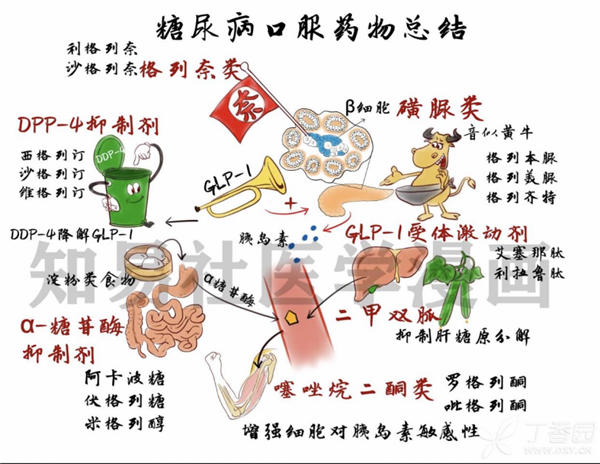 糖尿病口服药物总结
利格列奈
沙格列奈
格列奈类
奈
β细胞
磺脲类
音似黄牛
格列本脲
格列美脲
格列齐特
DPP-4抑制剂
DDP-4
西格列订
沙格列订
维格列订
GLP-1
+
DDP-4降解GLP-1
胰岛素
GLP-1受体激动剂
艾塞那肽
利拉鲁肽
知易社医学漫画
淀粉类食物
α糖苷酶
二甲双胍
抑制肝糖原分解
α-糖苷酶
抑制剂
阿卡波糖
伏格列糖
米格列醇
噻唑烷二酮类
罗格列酮
吡格列酮
增强细胞对胰岛素敏感性
丁香园
WWW.DXY.CN